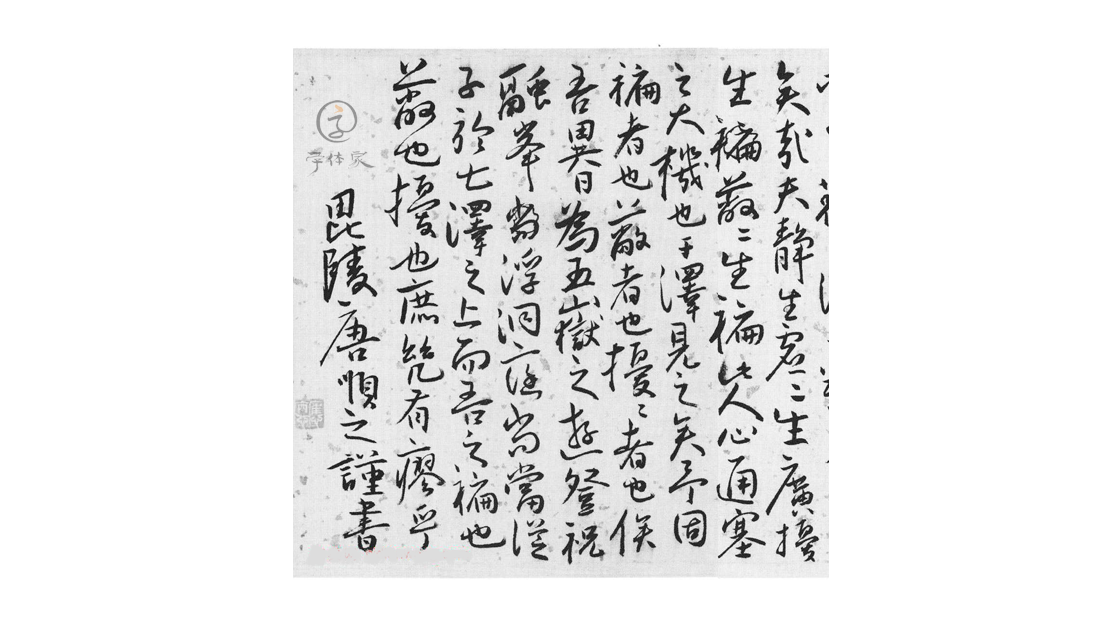 矣哉夫靜生虛二生廣擾
生褊蔽二生褊此人心通塞
之大機也予澤見之矣予固
褊者也蔽者也擾〻者也俟
吾異日為五嶽之遊登祝
融峯 浮洞庭尚當從
子於七澤之上而吾之褊也
蔽也擾也庶幾有瘳乎
毘陵唐順之謹書
字体家